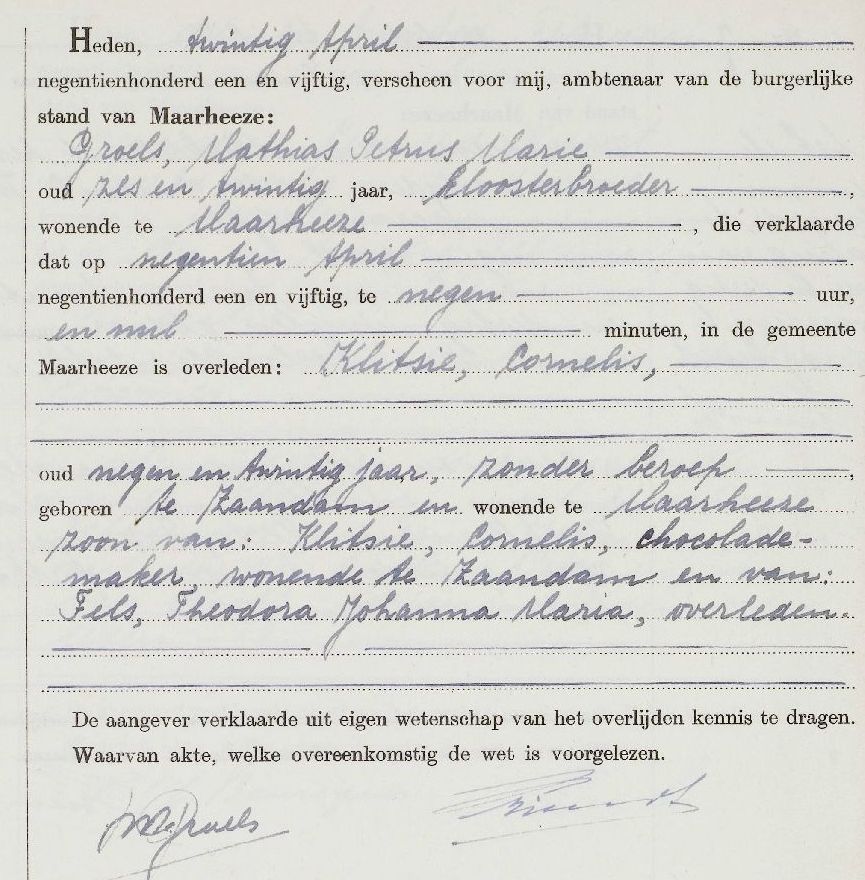 Heden, twintig April
negentienhonderd een en vijftig, verscheen voor mij, ambtenaar van de burgerlijke
stand van Maarheeze:
Groels, Mathias Petrus Marie
oud zes en twintig jaar, kloosterbroeder ,
wonende te Maarheeze , die verklaarde
dat op negentien April
negentienhonderd een en vijftig, te negen uur,
en nul minuten, in de gemeente
Maarheeze is overleden: Klitsie, Cornelis,
oud negen en twintig jaar, zonder beroep ,
geboren te Zaandam en wonende te Maarheeze
zoon van: Klitsie, Cornelis, chocolade-
maker, wonende te Zaandam en van:
Fels, Theodora Johanna Maria, overleden.
De aangever verklaarde uit eigen wetenschap van het overlijden kennis te dragen.
Waarvan akte, welke overeenkomstig de wet is voorgelezen.
Groels